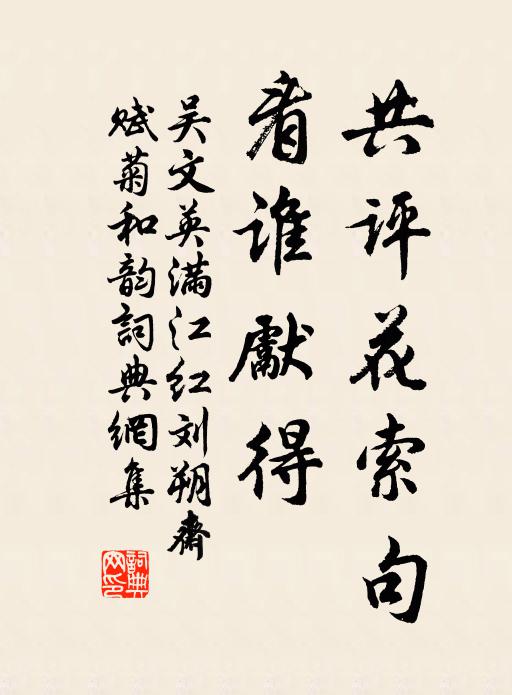 共评花索句
看谁獻得
吴文英滿江红刘朔齋
赋菊和韵詞典網集
詞典网印